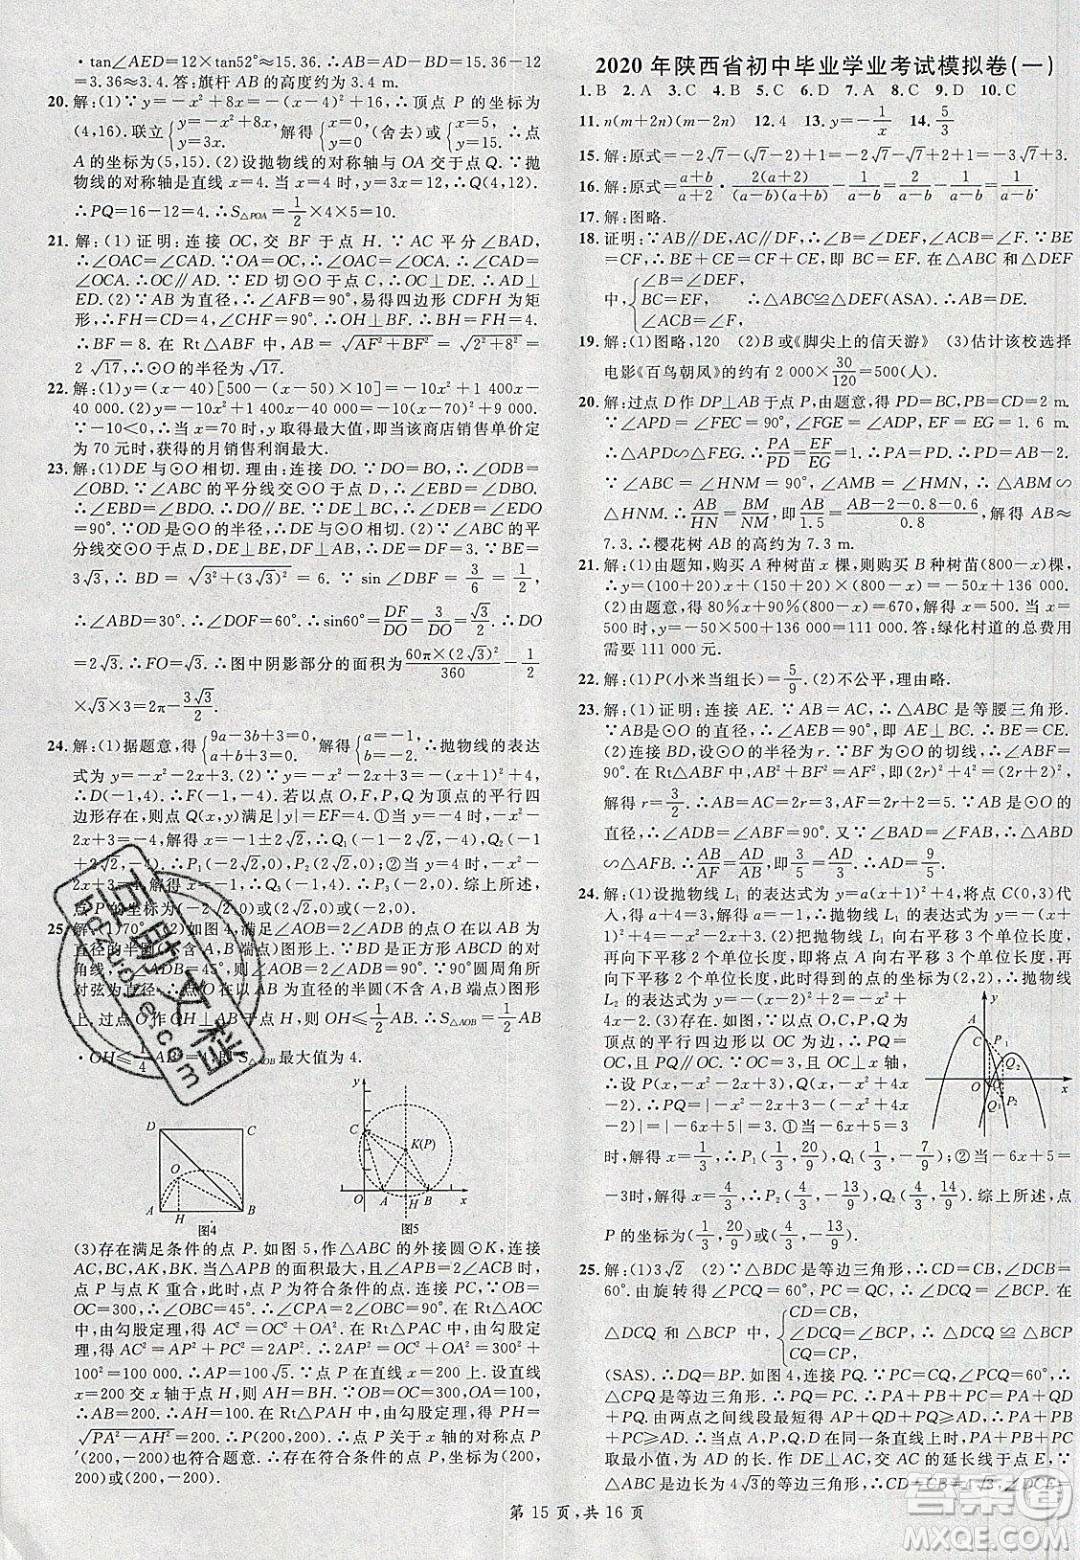 · tan∠AED=12×tan52°≈15.36. ∴AB=BE+AE=15.36-
3.36≈33.4. 答:旗杆 AB 的高度约为 15.4 m.
20. 解:(1)∵y=-x²+8x=-(x-4)²+16,∴顶点 P 的坐标为
(4,16). 联立{y=-x²+8x, y=3x. 解得{x=0, y=0 (舍去)或{x=5, y=15. ∴点
A 的坐标为(5,15). (2)设抛物线的对称轴与 OA 交于点 Q. ∵抛
物线的对称轴是直线 x=4. 当 x=4 时,y=3x=3×4=12.
∴PQ=16-12=4. ∴S△POA=1/2×4×5=10.
21. 解:(1) 证明:连接 OC,交 BF 于点 H. ∵ AC 平分∠BAD,
∴∠OAC=∠CAD. ∵OA=OC,∴∠OAC=∠OCA. ∴∠CAD=
∠OCA. ∴OC∥AD. ∵ED 切⊙O 于点 C,∴OC⊥DE. ∴AD⊥
DE. (2)∵AB 为直径,∴∠AFB=90°,易得四边形 CDFH 为矩
形,∴FH=CD=4,∠CHF=90°. ∴OH⊥BF. ∴BH=FH=4.
∴BF = 8. 在 Rt△ABF 中,AB = √(AF²+BF²) = √(2²+8²) =
2 √17. ∴⊙O 的半径为 √17.
22. 解:(1)y=(x-40)[500-(x-50)×10]=-10x²+1 400x-
40 000. (2)∵y=-10x²+1 400x-40 000=-10(x-70)²+9 000.
∵-10<0,∴当 x=70 时,y 取得最大值,即当该商店销售单价定
为 70 元时,获得的月销售利润最大.
23. 解:(1)DE 与⊙O 相切. 理由:连接 DO. ∵DO=BO,∴∠ODB=
∠OBD. ∵∠ABC 的平分线交⊙O 于点 D,∴∠EBD=∠DBO.
∴∠EBD=∠BDO. ∴DO∥BE. ∵DE⊥BC,∴∠DEB=∠EDO
=90°. ∵OD 是⊙O 的半径,∴DE 与⊙O 相切. (2)∵∠ABC 的平
分线交⊙O 于点 D,DE⊥BE,DF⊥AB,∴DE=DF=3. ∵BE=
3√3,∴BD = √(3²+(3√3)²) = 6. ∵ sin ∠DBF = 3/6 = 1/2,
∴∠ABD=30°. ∴∠DOF=60°. ∴sin60°=DF/DO=3/DO=√3/2. ∴DO
=2√3. ∴FO=√3. ∴图中阴影部分的面积为 60π×(2√3)²/360 - 1/2
×√3×3=2π-3√3/2.
24. 解:(1)据题意,可得{9a-3b+3=0, a+b+3=0. 解得{a=-1, b=-2. ∴抛物线的表达
式为 y=-x²-2x+3. (2)∵y=-x²-2x+3=-(x+1)²+4,
∴D(-1,4). ∴F(-1,0). 若以点 O,F,P,Q 为顶点的平行四边
形存在,则点 Q(x,y)满足|y|=EF=4. ①当 y=-4 时,-x²
-2x+3=-4,解得 x=-1±2√2. ∴Q₁(-1-2√2,-4),Q₂(-1
+2√2,-4). ∴P₁(-2√2,0),P₂(2√2,0);②当 y=4 时,-x²-
2x+3=4,解得 x=-1. ∴Q₃(-1,4). ∴P₃(-2,0). 综上所述,
点 P 的坐标为(-2√2,0)或(2√2,0)或(-2,0).
25. 解:(1)70°. (2)如图 4,满足∠AOB=2∠AOB 的点 O 在以 AB 为
直径的半圆(不含 A,B 端点)图形上. ∵BD 是正方形 ABCD 的对
角线,∴ ∵∠AOB=2∠AOB=90°. ∵90°圆周角所
对弦为直径,∴点 O 在以 AB 为直径的半圆(不含 A,B 端点)图形
上. 过点 O 作 OH⊥AB 于点 H,则 OH≤1/2 AB. ∴S△AOB=1/2 AB
·OH≤1/4 AB²=4,即 S△AOB 最大值为 4.
D C O A H B 图4
y C K(P) O A B x 图5
(3)存在满足条件的点 P. 如图 5,作△ABC 的外接圆⊙K,连接
AC,BC,AK,BK. ∵OB=OC,∴∠OBC=45°. 点 P 在抛物线
上,当点 P 与点 K 重合,此时∠CPA=2∠OBC. 又∵此时
∠CPA=90°,△CPA 面积最大,∴点 P 为符合条件的点. ∵OB=
300,∴∠OBC=45°. ∴∠CPA=2∠OBC=90°. 在 Rt△AOC
中,由勾股定理,得 AC²=OC²+OA². 连接 PC,∵OB=OC=
300,OA=100,∴PC=PA. 在 Rt△PAC 中,由勾股定
理,得 AC²=PC²+PA²=2PA². ∴PA²=1/2 AC²=1/2×(300²+
100²)=50 000. ∴PA=100√5. ∵点 P 在直线 x=200 上. 设直线
x=200 交 x 轴于点 H,∴AH=100. 在 Rt△PAH 中,PA=
100√5,AH=OH-OA=200-100=100,由勾股定理,得 PH=
√(PA²-AH²)=200. ∴P(200,200). ∵点 P 关于 x 轴的对称点
(200,-200)也符合题意,∴满足条件的点 P 的坐标为(200,
200)或(200,-200).
2020 年陕西省初中毕业学业考试模拟卷(一)
1. B 2. A 3. C 4. B 5. C 6. D 7. A 8. C 9. D 10. C
11. n(m+2n)(m-2n) 12. 4 13. y=-1/x 14. 5/3
15. 解:原式=-2√7-(√7-2)+(-1)-1=-2√7-√7+2-1-1=-3√7+3.
16. 解:原式=(a+b)/(a+2)·2(a+2)/((a-b)(a+b))-1/(a-b)=2/(a-b)-1/(a-b)=1/(a-b).
17. 解:图略.
18. 证明:∵AB∥DE,AC∥DF,∴∠B=∠DEF,∠ACB=∠F. ∵BE
=CF,∴BE+CE=CF+CE,即 BC=EF. 在△ABC 和△DEF
中,{∠B=∠DEF, BC=EF, ∠ACB=∠F, ∴△ABC≌△DEF(ASA). ∴AB=DE.
19. 解:(1)图略,120 (2)B 或《脚尖上的信天游》 (3)估计该校选择
电影《百鸟朝凤》的人数有 2 000×30/120=500(人).
20. 解:过点 D 作 DP⊥AB 于点 P,由题意,得 PD=BC,PB=CD=2 m.
∵∠APD=∠FEC=90°,∠FGE=∠ADP,FE=EG=1.6 m,
∴△PAD∽△FEG. ∴PA/PD=EF/EG=1. ∴PA=PD=BC=AB-2.
∵∠ABC=∠NHC=90°,∠AMB=∠HMN,∴△ABM∽
△HNM. ∴AB/HN=BM/NM,即 AB/1.5=(AB-2-0.8-0.6)/0.8. 解得 AB≈
7.3. ∴樱花树 AB 的高约为 7.3 m.
21. 解:(1)由题知,购买 A 种树苗 x 棵,则购买 B 种树苗(800-x)棵,
∴y=(100+20)x+(150+20)×(800-x)=-50x+136 000.
(2)由题意,得 80%x+90%(800-x)=670,解得 x=500. 当 x=
500 时,y=-50×500+136 000=111 000. 答:绿化村道的总费用
需要 111 000 元.
22. 解:(1)P(小米当组长)=5/9. (2)不公平,理由略.
23. 解:(1)证明:连接 AE. ∵AB=AC,∴△ABC 是等腰三角形.
∵AB 是⊙O 的直径,∴∠AEB=90°. ∴AE⊥BC. ∴BE=CE.
(2)连接 BD,设⊙O 的半径为 r. ∵BF 是⊙O 的切线,∴∠ABF=
90°. 在 Rt△ABF 中,AB²+BF²=AF²,即(2r)²+4²=(2r+2)²,
解得 r=3/2. ∴AB=AC=2r=3,AF=2r+2=5. ∵AB 是⊙O 的
直径,∴∠ADB=∠ABF=90°. 又∵∠BAD=∠BAF,∴△ABD
∽△AFB. ∴AF/AB=AB/AD. ∴AD=AB²/AF=9/5.
24. 解:(1)设抛物线 L₁ 的表达式为 y=a(x+1)²+4,将点 C(0,3)代
入,得 a+4=3,解得 a=-1,∴抛物线 L₁ 的表达式为 y=-(x+
1)²+4=-x²-2x+3. (2)把抛物线 L₁ 向右平移 3 个单位长度,
再向下平移 2 个单位长度,∴点 A 向右平移 3 个单位长度,再
向下平移 2 个单位长度,此时得到的点的坐标为(2,2),∴抛物线
L₂ 的表达式为 y=-(x-2)²+2=-x²+
4x-2. (3)存在. 如图,∵以点 O,C,P,Q 为
顶点的平行四边形以 OC 为边,∴OC∥PQ
且 OC=PQ. ∵OC⊥x 轴,∴PQ⊥x 轴,
∴设 P(x,-x²-2x+3),Q(x,-x²+4x-
2). ∴PQ=|-x²-2x+3-(-x²+4x-2)|=
OC=|-6x+5|=3. ①当-6x+5=3
时,解得 x=1/3. ∴P₁(1/3,20/9),Q₁(1/3,-7/9);②当-6x+5=
-3时,解得 x=4/3,∴P₂(4/3,-13/9),Q₂(4/3,14/9). 综上所述,点
P 的坐标为(1/3,20/9)或(4/3,-13/9).
25. 解:(1)3√2 (2)∵△BDC 是等边三角形,∴CD=CB,∠DCB=
60°. 由旋转的性质,得∠PCQ=60°,PC=QC. ∴∠DCQ=∠BCP. 在
△DCQ 和△BCP 中,{CD=CB, ∠DCQ=∠BCP, CQ=CP, ∴△DCQ≌△BCP
(SAS). ∴DQ=BP. 如图,连接 PQ. ∵PC=CQ,∠PCQ=
60°,∴△CPQ 是等边三角形,∴PQ=PC. ∴PA+PB+PC=PA+
QD+PQ. 由两点之间线段最短得 AP+QD+PQ≥AD,∴PA+
PB+PC≥AD. ∴当点 A,P,Q,D 在同一条直线上时,PA+PB+PC
取最小值,最小值为 AD 的长. 作 DE⊥AC 交 AC 的延长线于点 E.
∵△ABC 是边长为 4√3的等边三角形,∴CB=CD=AC=4√3,∠
第 15 页,共 16 页
互助文档
hdwk.laoruoye.com
答案圈
MXQE.COM